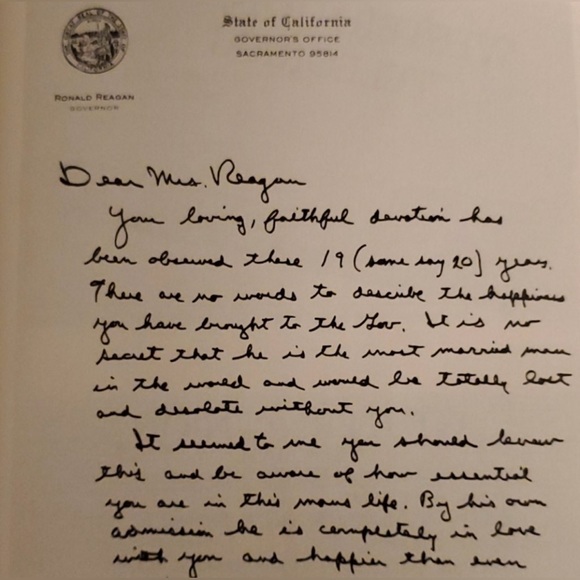 State of California
GOVERNOR'S OFFICE
SACRAMENTO 95814
RONALD REAGAN
GOVERNOR
Dear Mrs. Reagan
Your loving, faithful devotion has
been observed these 19 (some say 20) years.
There are no words to describe the happiness
you have brought to the Gov. It is no
secret that he is the most married man
in the world and would be totally lost
and desolate without you.
It seemed to me you should know
this and be aware of how essential
you are in this mans life. By his own
admission he is completely in love
with you and happier than even